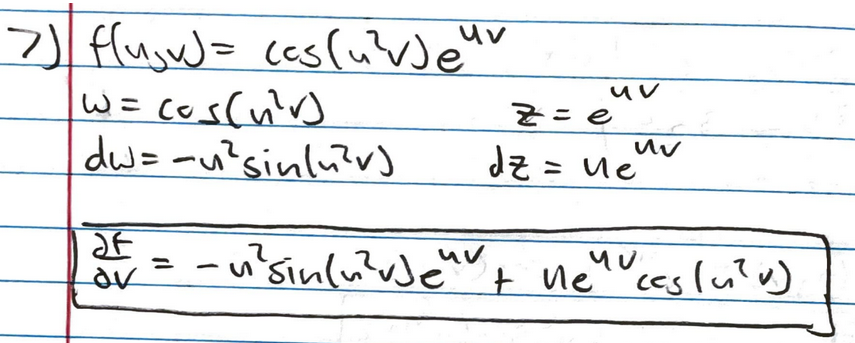 7) f(u,v) = cos(u²v)e^{uv}
w = cos(u²v) z = e^{uv}
dw = -u² sin(u²v) dz = ue^{uv}
∂f/∂v = -u² sin(u²v)e^{uv} + ue^{uv} cos(u²v)